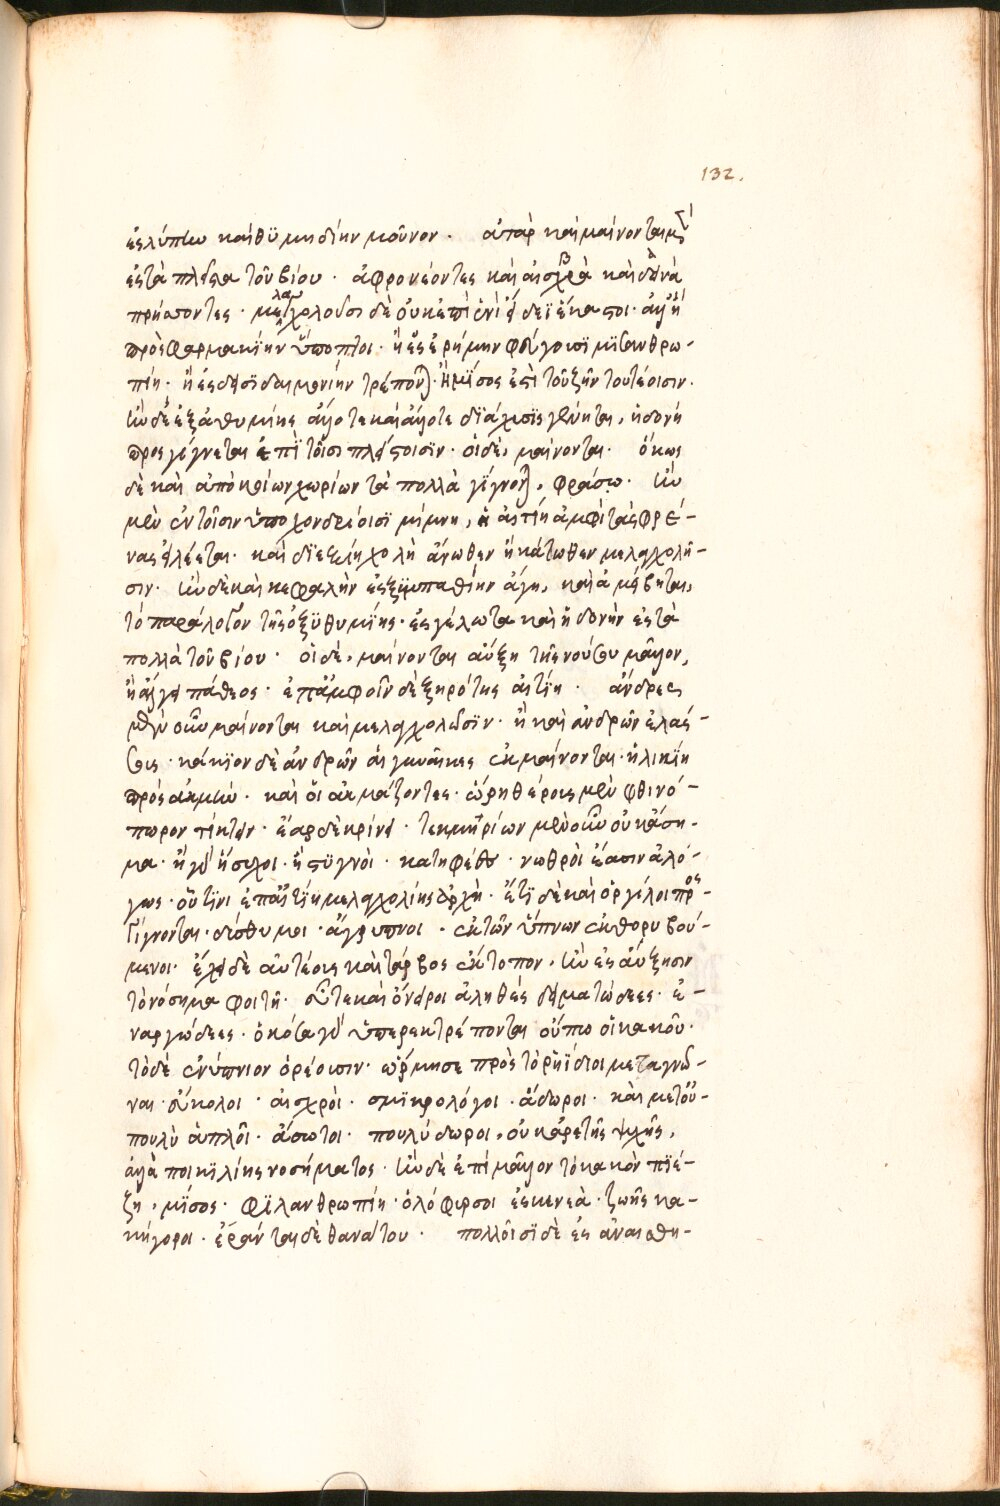 132.
ἐς λύπην καὶ θυμηδίην μοῦνον. αὐτὰρ καὶ μαίνονται μὲν
ἐς τὰ πλεῖστα τοῦ βίου. ἀφρονέοντες καὶ αἰσχρὰ καὶ δεινὰ
πρήσσοντες. μελαγχολοῦσι δὲ οὐκ ἐπὶ ἑνὶ εἴδεϊ ἕκαστοι. ἀλλ' ἢ
πρὸς φαρμακίην ὕποπτοι. ἢ ἐς ἐρήμην φεύγουσι μισανθρω-
πίῃ. ἢ ἐς δεισιδαιμονίην τρέπονται. ἢ μῖσος ἐστὶ τοῦ ζῆν τουτέοισιν.
ἢν δὲ ἐξ ἀθυμίης ἄλλοτε καὶ ἄλλοτε διάχυσις γένηται, ἡδονὴ
προσγίγνεται ἐπὶ τοῖσι πλείστοισιν. οἱ δὲ, μαίνονται. ὅκως
δὲ καὶ ἀπὸ κοίων χωρίων τὰ πολλὰ γίγνονται, φράσω. ἢν
μὲν ἐν τοῖσιν ὑποχονδρίοισι μίμνῃ, ἀστίη ἀμφὶ τὰς φρέ-
νας εἱλέεται. καὶ διεξίῃ χολὴ ἄνωθεν ἢ κάτωθεν μελαγχολῆ-
σιν. ἢν δὲ καὶ κεφαλὴν ἐς ξυμπαθίην ἄγῃ, καὶ ἀμείβηται,
τὸ παράλογον τῆς ὀξυθυμίης. ἐς γέλωτα καὶ ἡδονὴν ἐς τὰ
πολλὰ τοῦ βίου. οἱ δὲ, μαίνονται αὔξῃ τῆς νούσου μᾶλλον,
ἢ ἀλλαγῇ πάθεος. ἐπ' ἀμφοῖν δὲ ξηρότης αἰτίη. ἄνδρες
μὲν οὖν μαίνονται καὶ μελαγχολῶσιν. ἢ καὶ ἀνδρῶν ἐλάς-
σους. κάκιον δὲ ἀνδρῶν αἱ γυναῖκες ἐκμαίνονται. ἡλικίη
πρὸς ἀκμὴν. καὶ οἱ ἀκμάζοντες. ὧραι θέρος μὲν φθινό-
πωρον τίκτει. ἔαρ δὲ κρίνει. τεκμηρίων μὲν οὖν οὐκ ἄση-
μα. ἢ γὰρ ἥσυχοι. ἢ στυγνοὶ. κατηφέες. νωθροὶ ἔασιν ἀλό-
γως. οὔ τινι ἐπ' αἰτίῃ μελαγχολίης ἀρχὴ. ἔτι δὲ καὶ ὀργίλοι προσ-
γίγνονται. δύσθυμοι. ἄγρυπνοι. ἐκ τῶν ὕπνων ἐκθορυβού-
μενοι. ἔχει δὲ αὐτέοις καὶ τάρβος ἔκτοπον. ἢν ἐς αὔξησιν
τὸ νόσημα φοιτῇ. εὖτε καὶ ὄνειροι ἀληθέες δειματώδεες. ἐ-
ναργώδεες. ὁκόσα γὰρ ὑπερεκτρέπονται οὕπω οἱ κακοῦ.
τὸ δὲ ἐνύπνιον ὁρέουσιν. ὥρμησε πρὸς τὸ ῥηΐδιοι μεταγνῶ-
ναι. εὔκολοι. αἰσχροὶ. σμικρολόγοι. ἄδωροι. καὶ μετ' οὐ-
πουλὺ ἁπλοῖ. ἄσωτοι. πουλύδωροι, οὐκ ἀρετῆς ψυχῆς,
ἀλλὰ ποικιλίης νοσήματος. ἢν δὲ ἐπὶ μᾶλλον τὸ κακὸν πιέ-
ζῃ, μῖσος. φιλανθρωπίη. ὀλόφυρσοι ἐς κενεὰ. ζωῆς κα-
κήγοροι. ἐρᾶνται δὲ θανάτου. πολλοῖσι δὲ ἐς ἀναισθη-